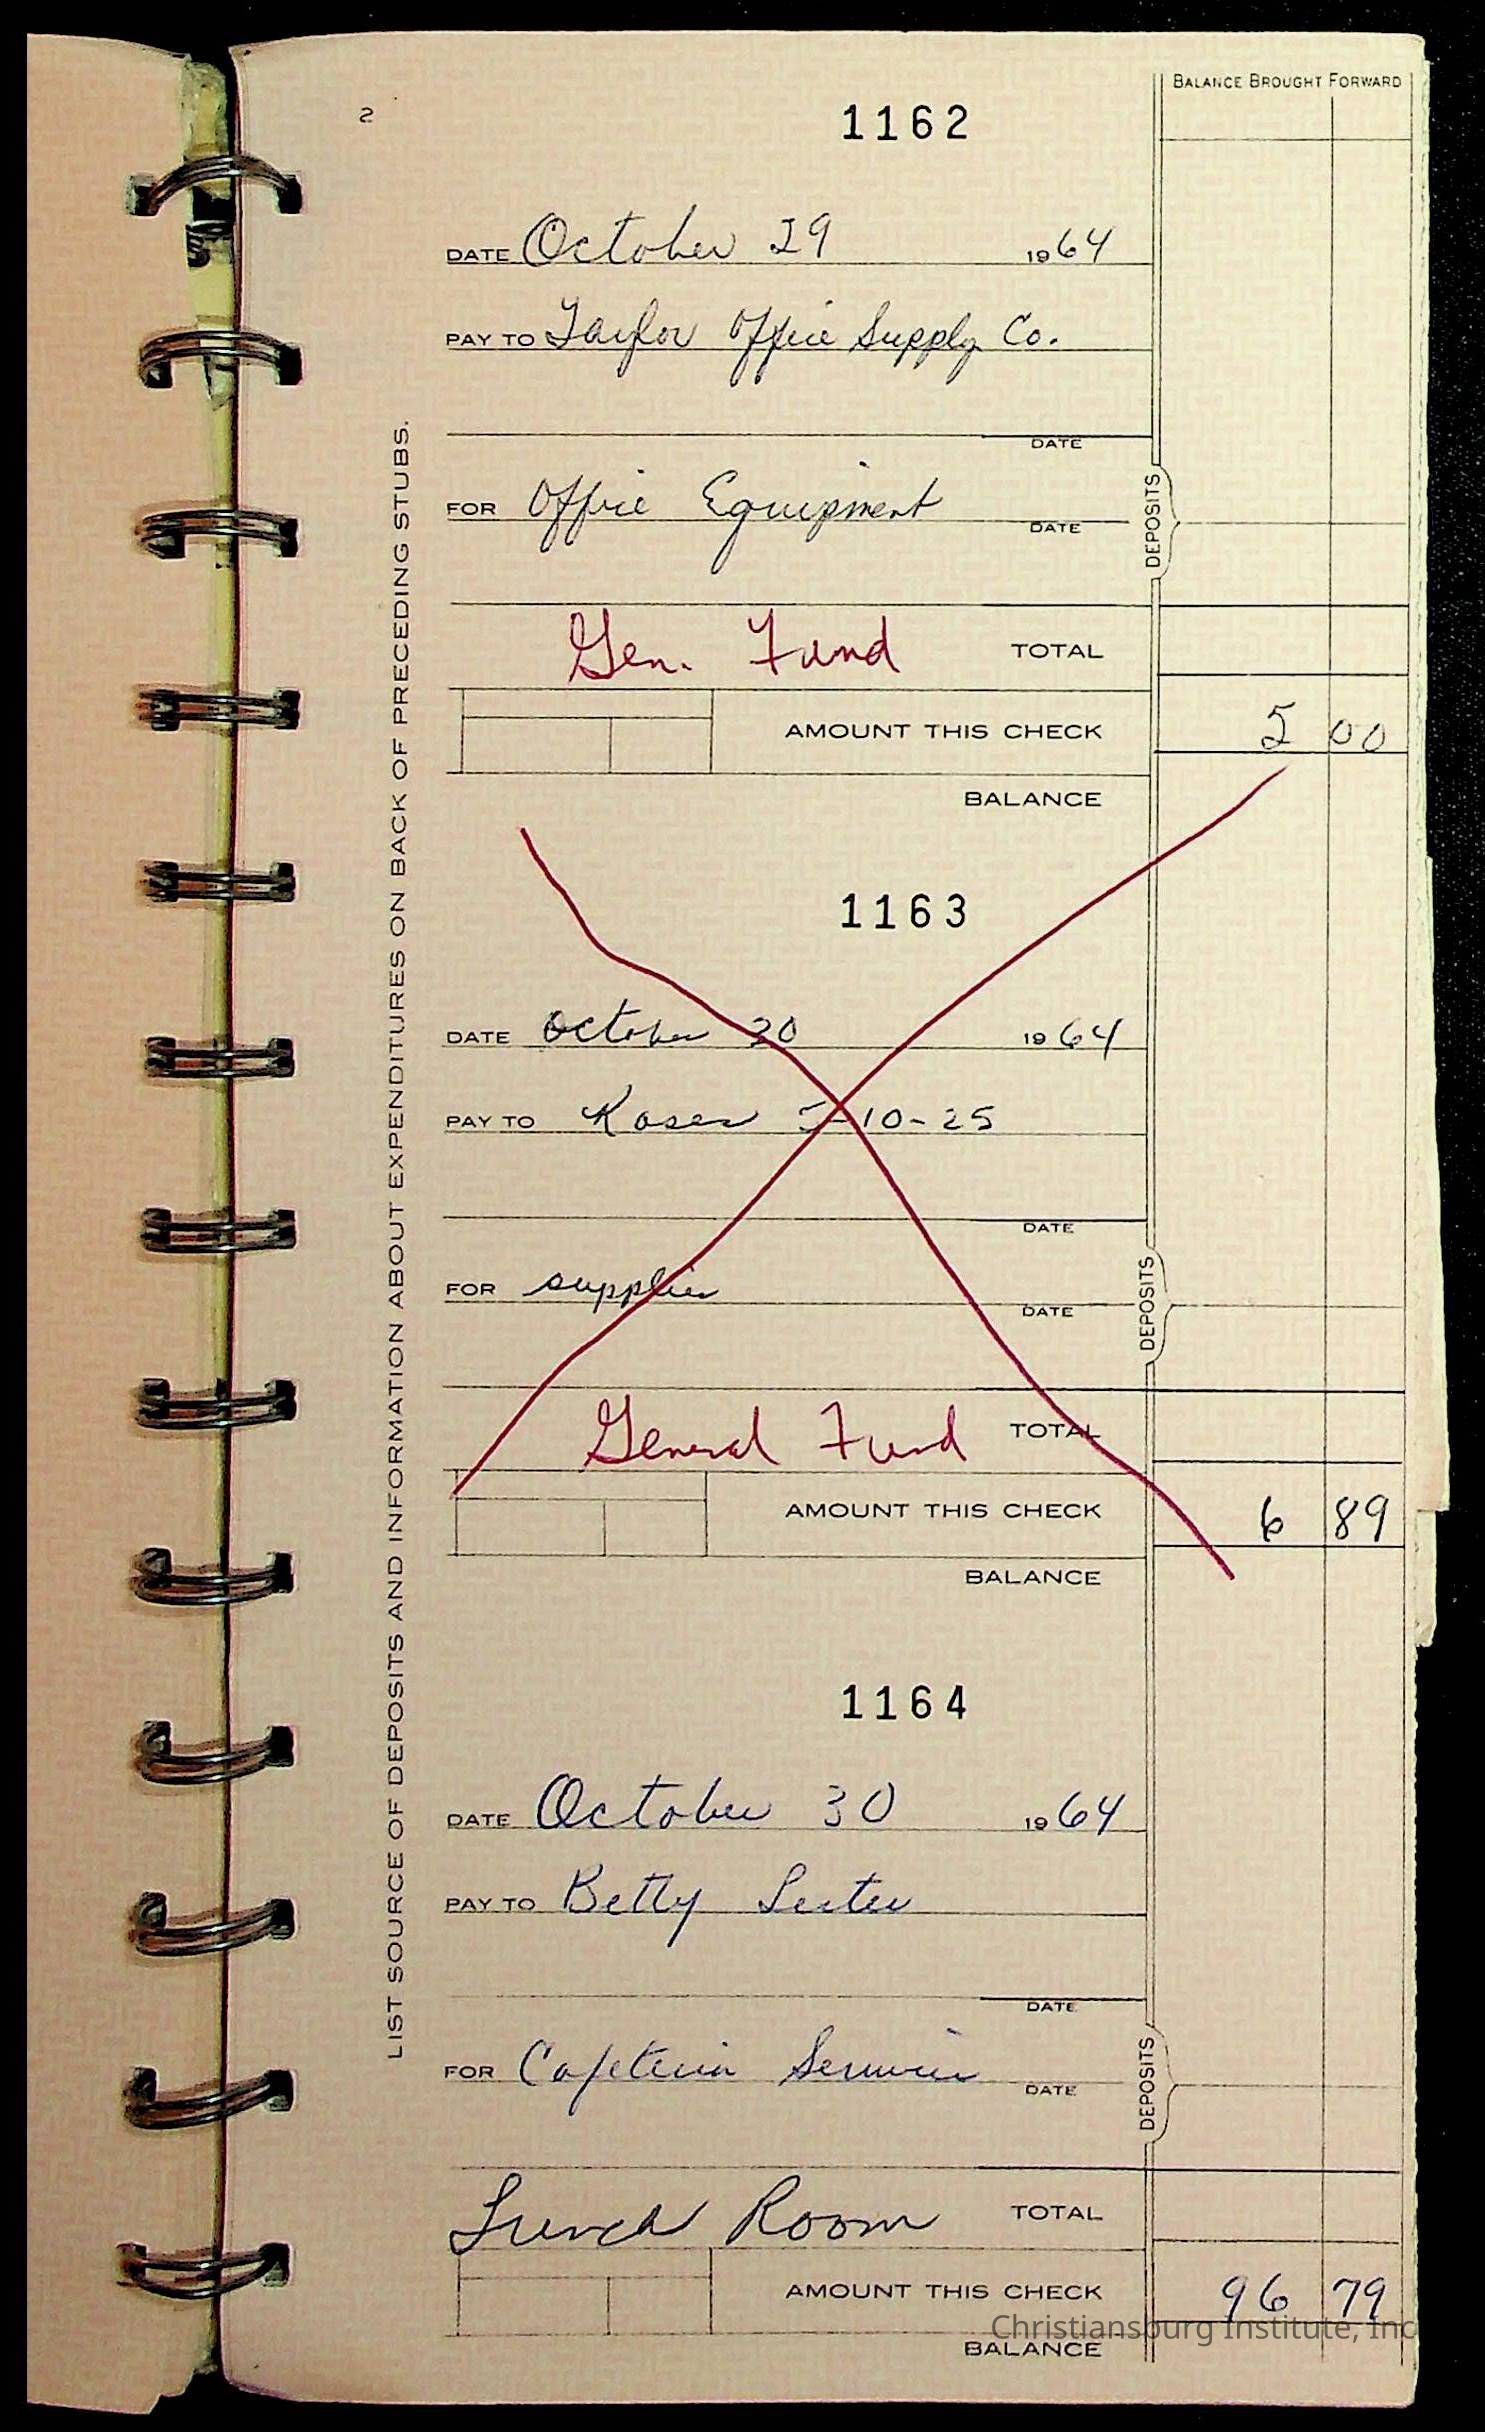 2
1162
BALANCE BROUGHT FORWARD
DATE October 29 1964
PAY TO Taylor Office Supply Co.
DATE
FOR Office Equipment
DATE
DEPOSITS
Gen. Fund TOTAL
AMOUNT THIS CHECK 5 00
BALANCE
1163
DATE October 30 1964
PAY TO Roses 5-10-25
DATE
FOR supplies
DATE
DEPOSITS
General Fund TOTAL
AMOUNT THIS CHECK 6 89
BALANCE
1164
DATE October 30 1964
PAY TO Betty
DATE
FOR Cafeteria Services
DATE
DEPOSITS
Lunch Room TOTAL
AMOUNT THIS CHECK 96 79
BALANCE
LIST SOURCE OF DEPOSITS AND INFORMATION ABOUT EXPENDITURES ON BACK OF PRECEDING STUBS.
Christiansburg Institute, Inc